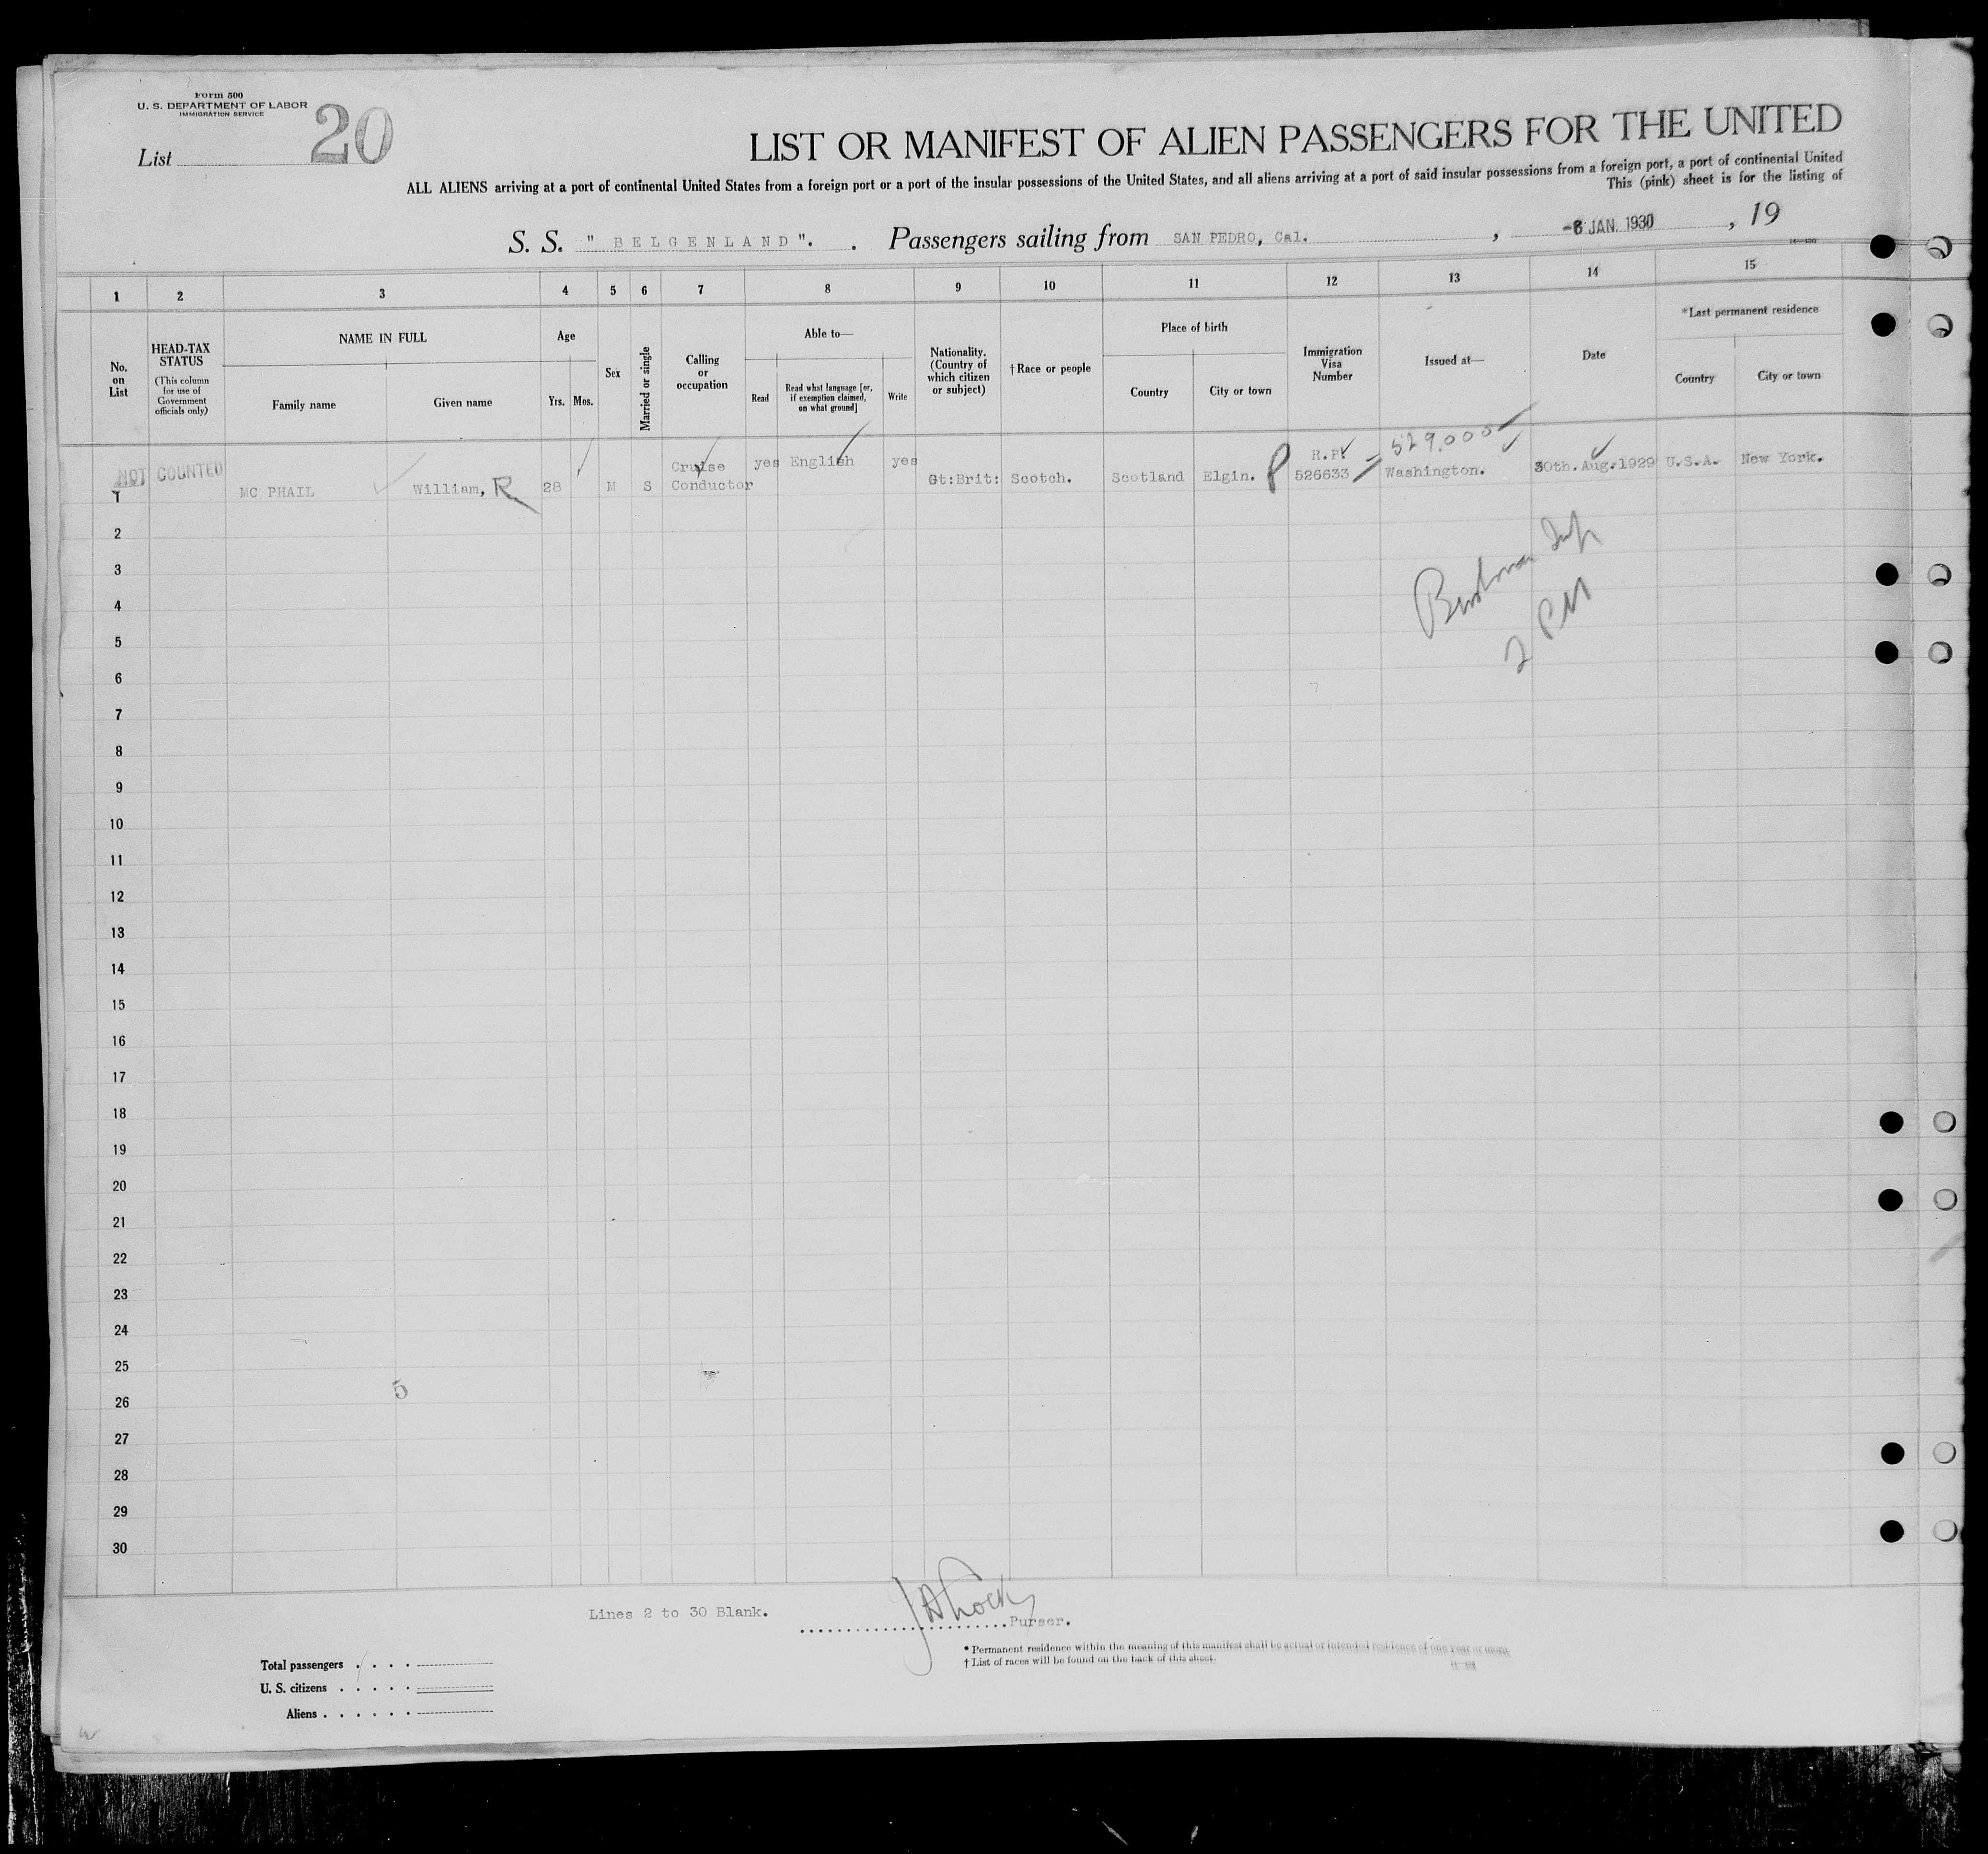 Form 500
U. S. DEPARTMENT OF LABOR
IMMIGRATION SERVICE
List 20
LIST OR MANIFEST OF ALIEN PASSENGERS FOR THE UNITED
ALL ALIENS arriving at a port of continental United States from a foreign port or a port of the insular possessions of the United States, and all aliens arriving at a port of said insular possessions from a foreign port, a port of continental United
This (pink) sheet is for the listing of
S. S. " BELGENLAND". . Passengers sailing from SAN PEDRO, Cal. , -8 JAN. 1930 , 19
1 2 3 4 5 6 7 8 9 10 11 12 13 14 15
No. on List
HEAD-TAX STATUS
(This column for use of Government officials only)
NAME IN FULL
Family name
Given name
Age
Yrs. Mos.
Sex
Married or single
Calling or occupation
Able to—
Read
Read what language [or, if exemption claimed, on what ground]
Write
Nationality. (Country of which citizen or subject)
†Race or people
Place of birth
Country
City or town
Immigration Visa Number
Issued at—
Date
*Last permanent residence
Country
City or town
NOT COUNTED
1 MC PHAIL William, R 28 M S Cruise Conductor yes English yes Gt:Brit: Scotch. Scotland Elgin. P R.P. 526633 529.000 Washington. 30th.Aug.1929 U.S.A. New York.
2
3
4
5
6
7
8
9
10
11
12
13
14
15
16
17
18
19
20
21
22
23
24
25
26
27
28
29
30
2 PM
5
Lines 2 to 30 Blank.
Purser.
* Permanent residence within the meaning of this manifest shall be actual or intended residence of one year or more.
† List of races will be found on the back of this sheet.
Total passengers . . . .
U. S. citizens . . . . .
Aliens . . . . . .